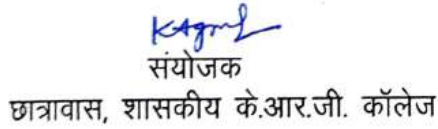 संयोजक
छात्रावास, शासकीय के.आर.जी. कॉलेज